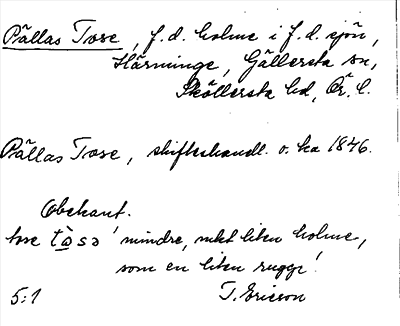 Pållas Tose, f.d. holme i f.d. sjön,
Härminge, Gällersta sn,
Sköllersta hd, Ör. l.
Pållas Tose, skifteshandl. o. ka 1846.
Obekant.
tose tòsə 'mindre, mkt liten holme,
som en liten rugge'.
5:1 T. Ericson